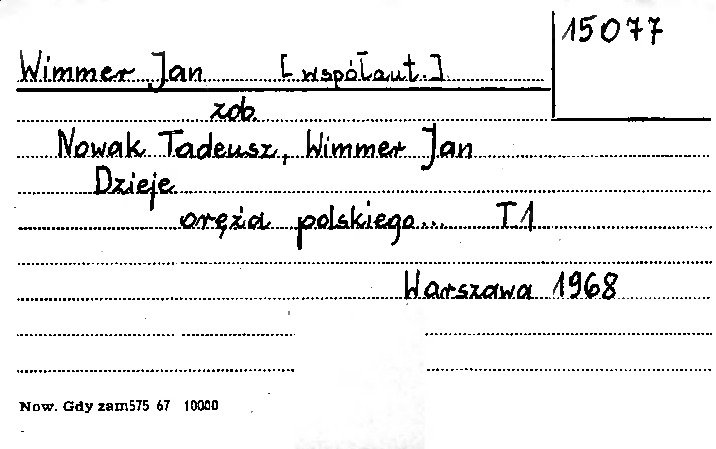 15077
Wimmer Jan [współaut.]
zob.
Nowak Tadeusz, Wimmer Jan
Dzieje
oręża polskiego... T1
Warszawa 1968
Now. Gdy zam575 67 10000